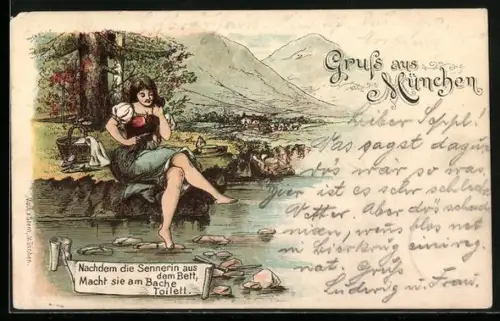 Gruß aus
München
Lieber Seppl!
Was sagst dazu,
dös wär so was.
Hier ist es sehr schlecht
Wetter. Aber dös schad
nix, wenns blos net
in Bierkrug einireg-
nat. Gruß
Ludwig u. Frau.
Nachdem die Sennerin aus
dem Bett,
Macht sie am Bache
Toilett.